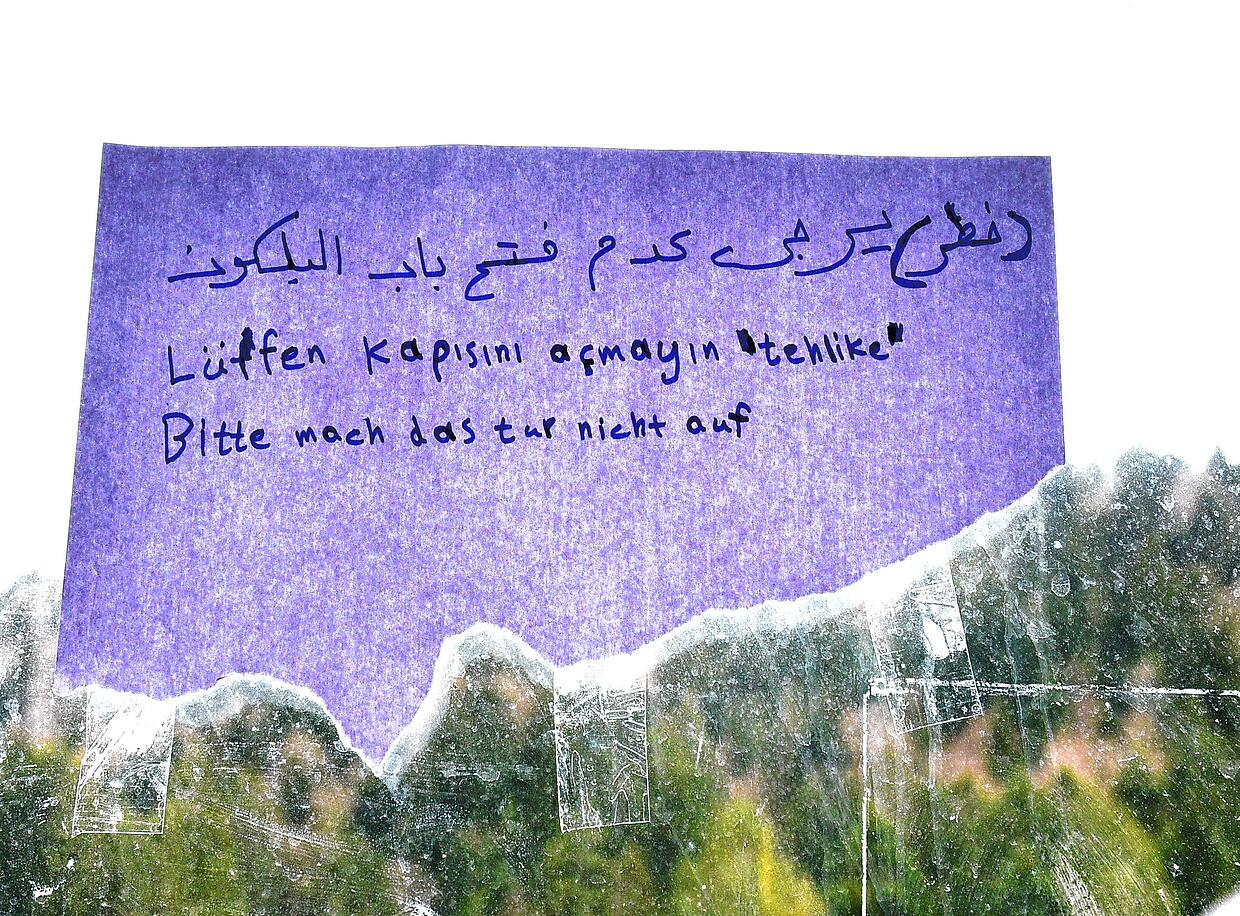 (خطر) يرجى عدم فتح باب البلكون
Lütfen Kapısını açmayın "tehlike"
Bitte mach das tur nicht auf